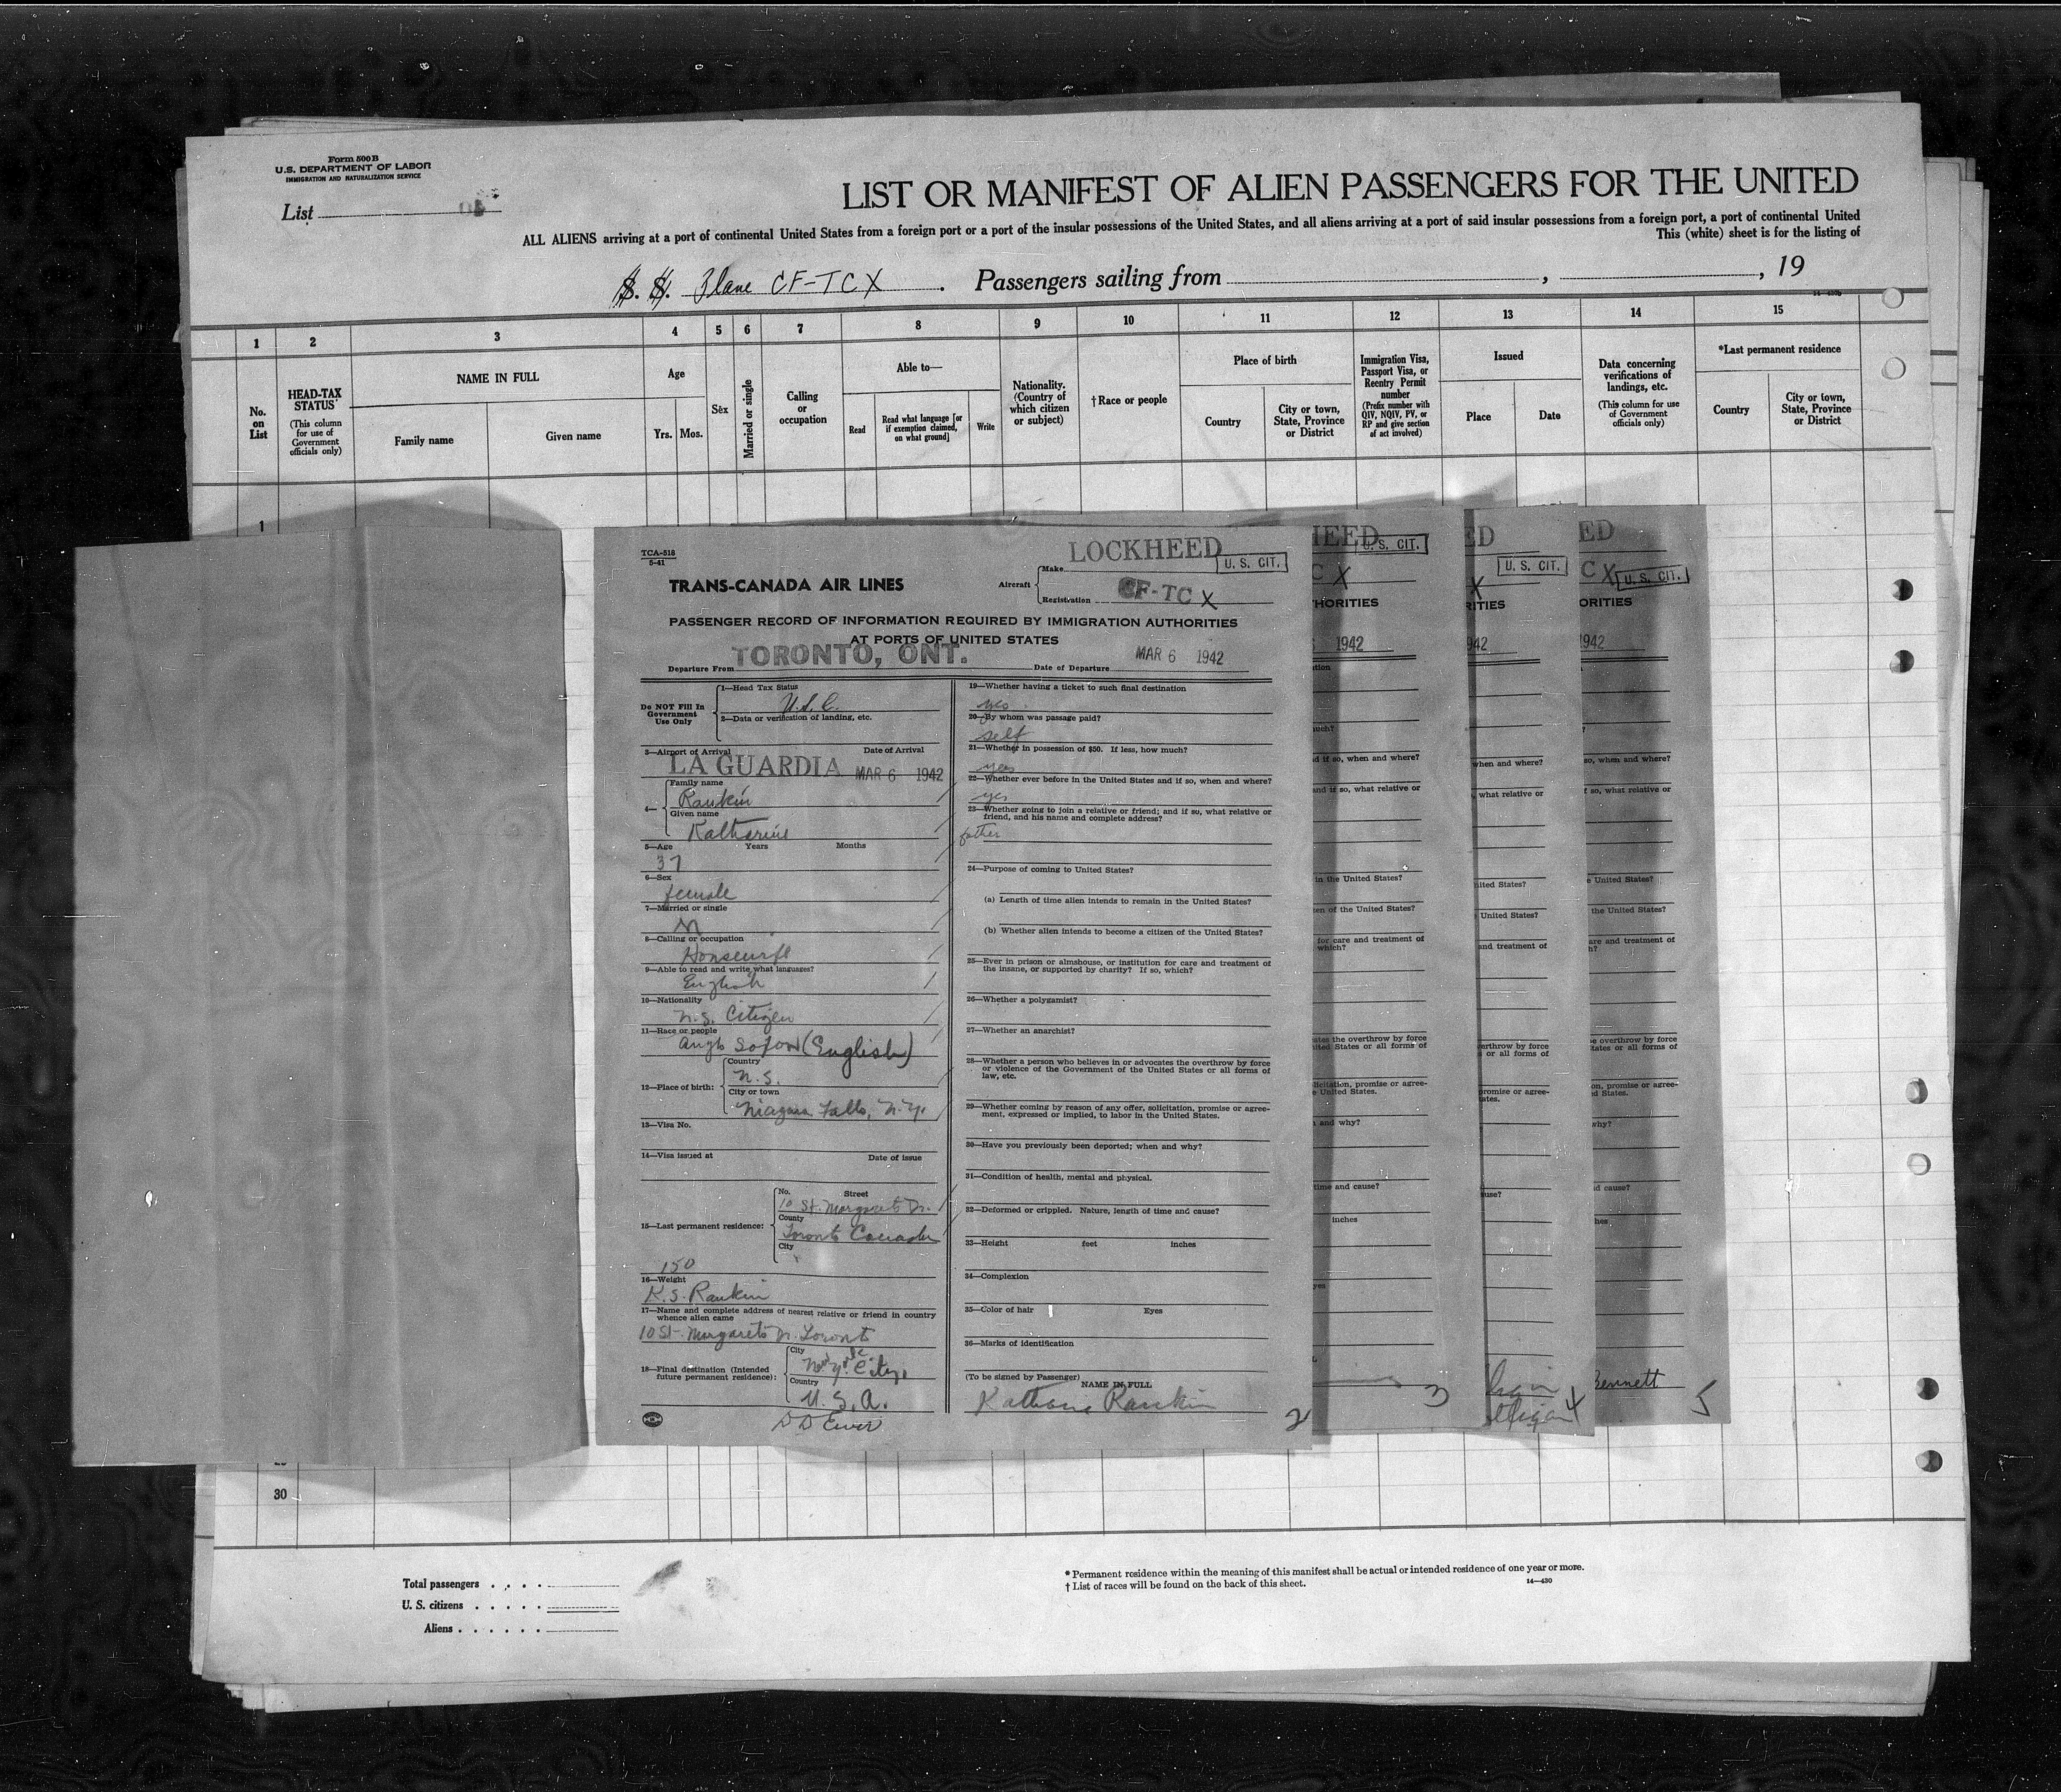 Form 500 B
U.S. DEPARTMENT OF LABOR
IMMIGRATION AND NATURALIZATION SERVICE
List
LIST OR MANIFEST OF ALIEN PASSENGERS FOR THE UNITED
ALL ALIENS arriving at a port of continental United States from a foreign port or a port of the insular possessions of the United States, and all aliens arriving at a port of said insular possessions from a foreign port, a port of continental United
This (white) sheet is for the listing of
S. S. Plane CF-TCX. Passengers sailing from , , 19
1 2 3 4 5 6 7 8 9 10 11 12 13 14 15
No. on List
HEAD-TAX STATUS
(This column for use of Government officials only)
NAME IN FULL
Family name
Given name
Age
Yrs. Mos.
Sex
Married or single
Calling or occupation
Able to—
Read
Read what language [or if exemption claimed, on what ground]
Write
Nationality. (Country of which citizen or subject)
†Race or people
Place of birth
Country
City or town, State, Province or District
Immigration Visa, Passport Visa, or Reentry Permit number
(Prefix number with QIV, NQIV, PV, or RP and give section of act involved)
Issued
Place
Date
Data concerning verifications of landings, etc.
(This column for use of Government officials only)
*Last permanent residence
Country
City or town, State, Province or District
1
TCA-518
5-41
TRANS-CANADA AIR LINES
Aircraft
Make LOCKHEED
U. S. CIT.
Registration CF-TC X
PASSENGER RECORD OF INFORMATION REQUIRED BY IMMIGRATION AUTHORITIES
AT PORTS OF UNITED STATES
Departure From TORONTO, ONT. Date of Departure MAR 6 1942
Do NOT Fill In Government Use Only
1—Head Tax Status
U.S.C.
2—Data or verification of landing, etc.
3—Airport of Arrival Date of Arrival
LA GUARDIA MAR 6 1942
4—
Family name
Rankin
Given name
Katharine
5—Age Years Months
37
6—Sex
female
7—Married or single
M
8—Calling or occupation
Housewife
9—Able to read and write what languages?
English
10—Nationality
U.S. Citizen
11—Race or people
Anglo Saxon (English)
12—Place of birth:
Country
U.S.
City or town
Niagara Falls, N.Y.
13—Visa No.
14—Visa issued at Date of issue
15—Last permanent residence:
No. Street
10 St. Margarets Dr.
County
Toronto Canada
City
150
16—Weight
K.S. Rankin
17—Name and complete address of nearest relative or friend in country
whence alien came
10 St. Margarets Dr. Toronto
18—Final destination (Intended
future permanent residence):
City
New York City,
Country
U.S.A.
19—Whether having a ticket to such final destination
yes
20—By whom was passage paid?
self
21—Whether in possession of $50. If less, how much?
yes
22—Whether ever before in the United States and if so, when and where?
yes
23—Whether going to join a relative or friend; and if so, what relative or
friend, and his name and complete address?
father
24—Purpose of coming to United States?
(a) Length of time alien intends to remain in the United States?
(b) Whether alien intends to become a citizen of the United States?
25—Ever in prison or almshouse, or institution for care and treatment of
the insane, or supported by charity? If so, which?
26—Whether a polygamist?
27—Whether an anarchist?
28—Whether a person who believes in or advocates the overthrow by force
or violence of the Government of the United States or all forms of
law, etc.
29—Whether coming by reason of any offer, solicitation, promise or agree-
ment, expressed or implied, to labor in the United States.
30—Have you previously been deported; when and why?
31—Condition of health, mental and physical.
32—Deformed or crippled. Nature, length of time and cause?
33—Height feet inches
34—Complexion
35—Color of hair Eyes
36—Marks of identification
(To be signed by Passenger)
NAME IN FULL
Katharine Rankin
2
U. S. CIT.
X
HORITIES
1942
inches
3
ED
U. S. CIT.
X
RITIES
942
4
ED
C X
U. S. CIT.
ORITIES
1942
Bennett
5
30
Total passengers
U. S. citizens
Aliens
* Permanent residence within the meaning of this manifest shall be actual or intended residence of one year or more.
† List of races will be found on the back of this sheet.
14—430